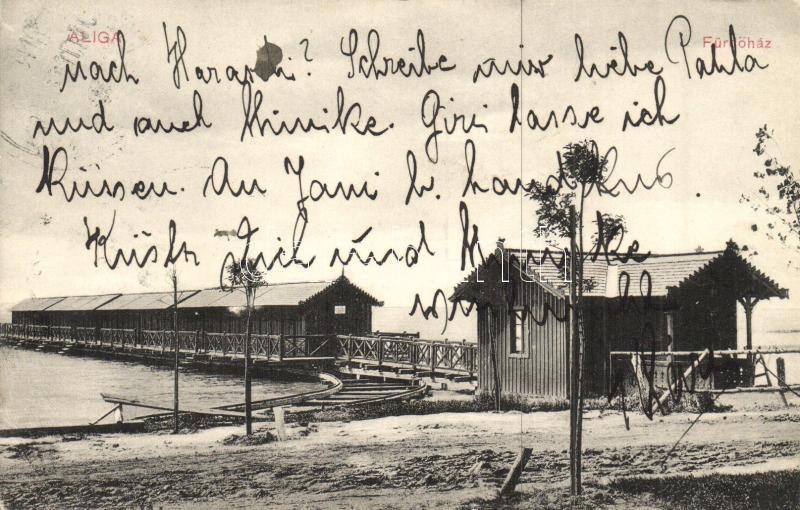 ALIGA
Fürdőház
nach Harasti? Schreibe mir liebe Pahla
und auch Minike. Giri lasse ich
Küssen. An Jani h. handkus.
Küsst Dich und Minike